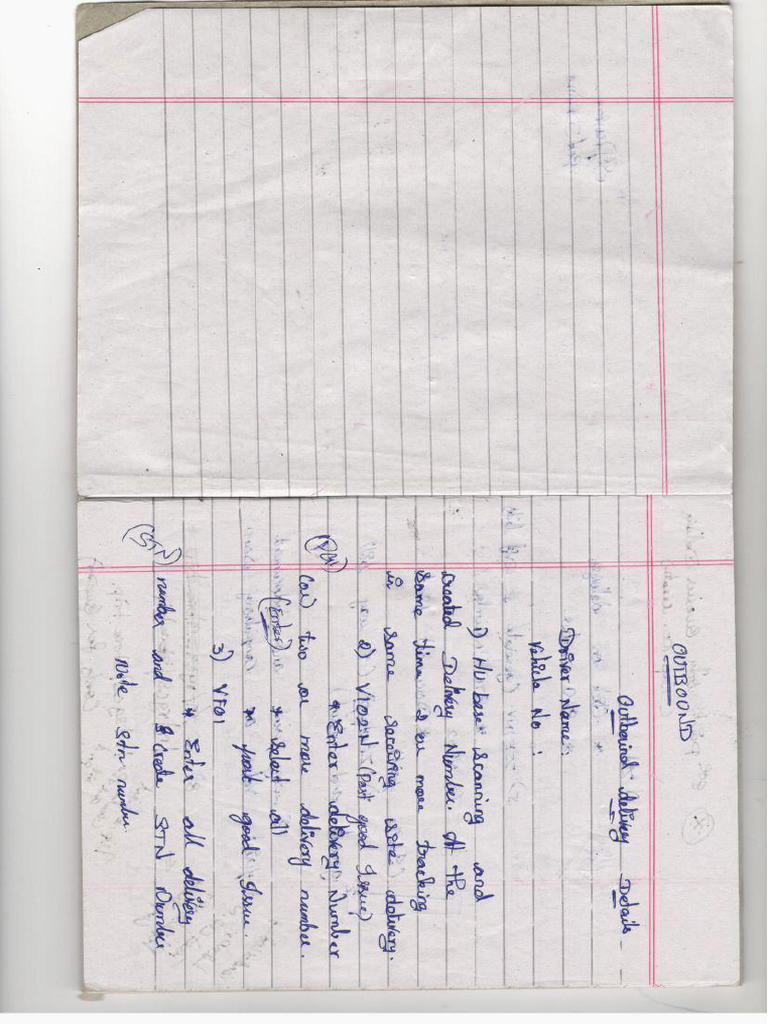 OUTBOUND
Outbound delivery Details -
Driver Name:
Vehicle No :
1) HU base scanning and
created Delivery Number. At the
same time 2 or more tracking
in same receiving site delivery.
2) VL02N (post good Issue)
* Enter delivery Number
(PGI)
(or) two or more delivery number.
(Enter) * Select all
* post good Issue.
3) VF01
* Enter all delivery
number and create STN Number.
(STN)
Note STN number